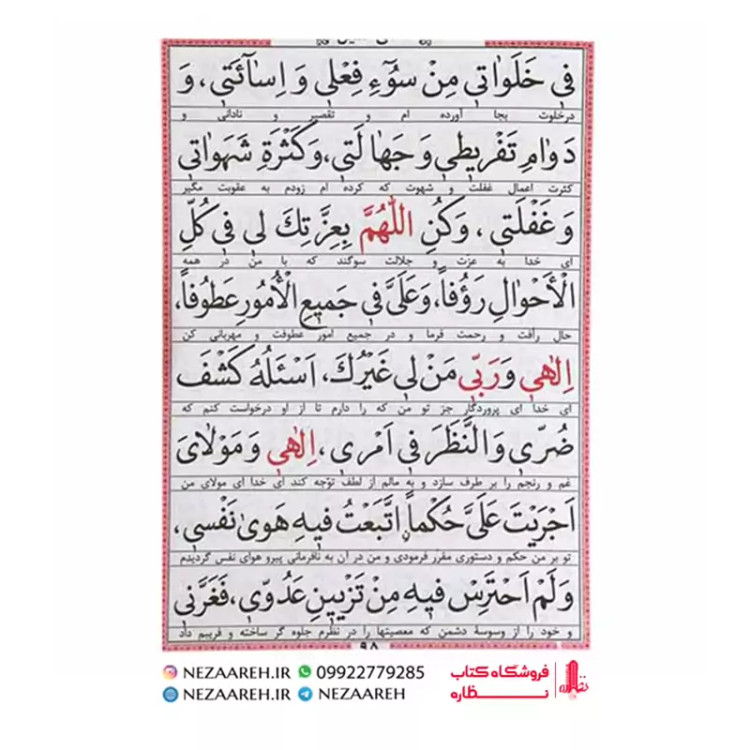 فى خَلَواتى مِنْ سُوۤءِ فِعْلى وَ اِسآئَتى، وَ
درخلوت بجا آورده ام و تقصیر و نادانی و
دَوامِ تَفْريطى وَ جَهالَتى، وَكَثْرَةِ شَهَواتى
کثرت اعمال غفلت و شهوت که کرده ام زودم به عقوبت مگیر
وَ غَفْلَتى ، وَكُنِ اللّٰهُمَّ بِعِزَّتِكَ لى فى كُلِّ
ای خدا به عزت و جلالت سوگند که با من در همه
الْاَحْوالِ رَؤُفاً، وَعَلَىَّ فى جَميعِ الْاُمُورِ عَطُوفاً،
حال رأفت و رحمت فرما و در جمیع امور عطوفت و مهربانی کن
اِلٰهى وَ رَبّى مَنْ لى غَيْرُكَ، اَسْئَلُهُ كَشْفَ
ای خدا ای پروردگار جز تو من که را دارم تا از او درخواست کنم که
ضُرّى وَ النَّظَرَ فى اَمْرى ، اِلٰهى وَ مَوْلاىَ
غم و رنجم را بر طرف سازد و به مالم از لطف توّجه کند ای خدا ای مولای من
اَجْرَيْتَ عَلَىَّ حُكْماً اتَّبَعْتُ فيهِ هَوىٰ نَفْسى،
تو بر من حکم و دستوری مقرر فرمودی و من در آن به نافرمانی پیرو هوای نفس گردیدم
وَ لَمْ اَحْتَرِسْ فيهِ مِنْ تَزْيينِ عَدُوّى، فَغَرَّنى
و خود را از وسوسۀ دشمن که معصیتها را در نظرم جلوه گر ساخته و فریبم داد
۹۸
NEZAAREH.IR 09922779285
NEZAAREH.IR NEZAAREH
فروشگاه کتاب
نظاره